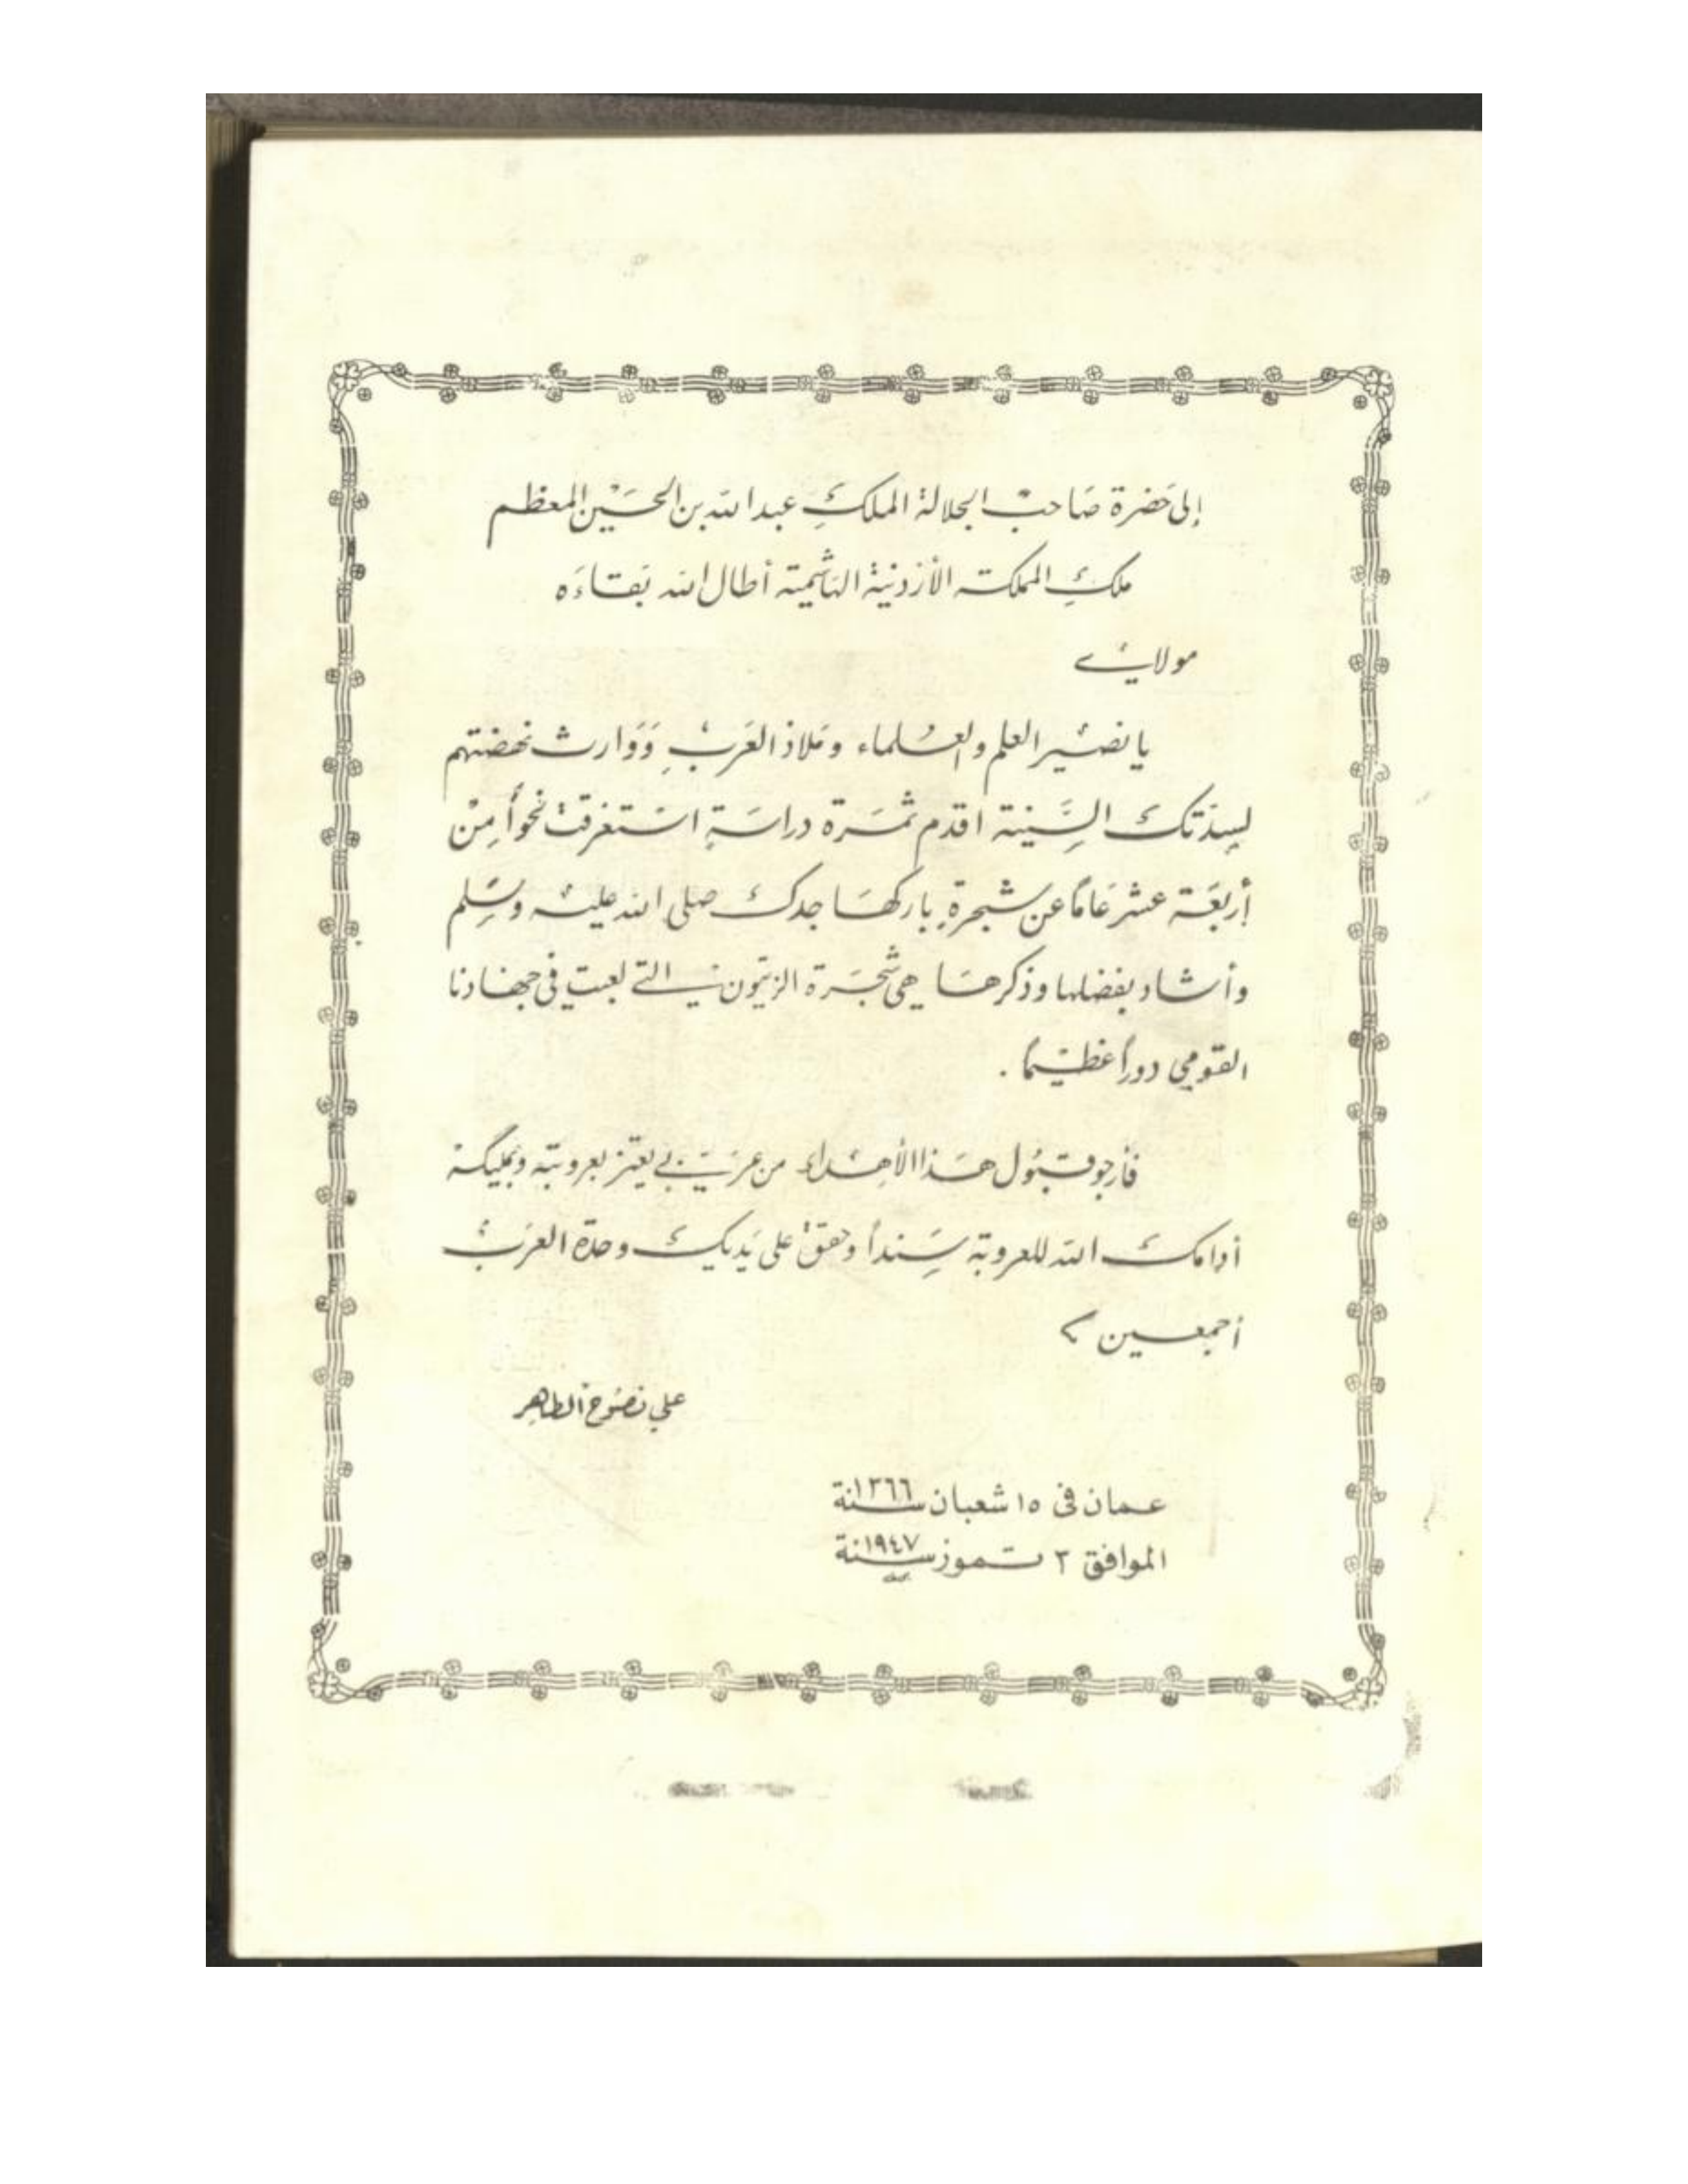 إلى حضرة صاحب الجلالة الملك عبد الله بن الحسين المعظم
ملك المملكة الأردنية الهاشمية أطال الله بقاءه
مولاي
يا نصير العلم والعلماء وملاذ العرب ووارث نهضتهم
لسدتك السنية اقدم ثمرة دراسة استغرقت نحواً من
أربعة عشر عاماً عن شجرة باركها جدك صلى الله عليه وسلم
وأشاد بفضلها وذكرها هي شجرة الزيتون التي لعبت في جهادنا
القومي دوراً عظيما .
فأرجو قبول هذا الأهداء من عربي يعتز بعروبته وبمليكه
أدامك الله للعروبة سنداً وحقق على يديك وحدة العرب
أجمعين
علي نصوح الطاهر
عمان في ١٥ شعبان سنة ١٣٦٦
الموافق ٣ تموز سنة ١٩٤٧